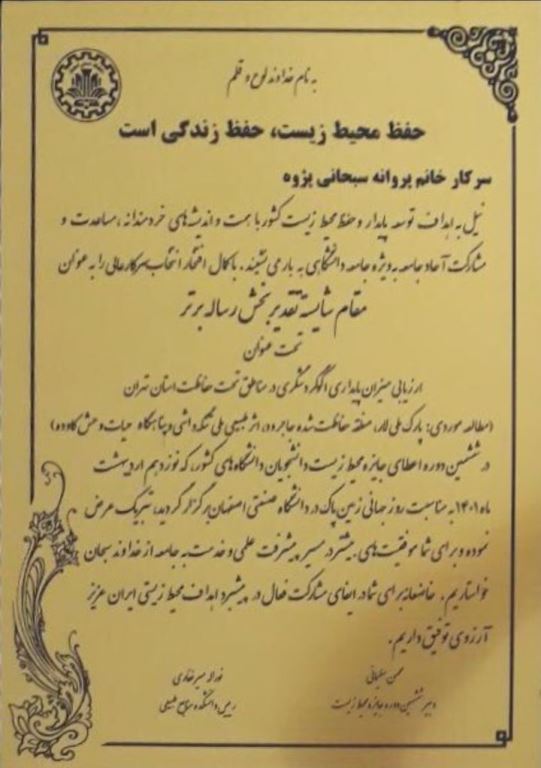 به نام خداوند لوح و قلم
حفظ محیط زیست، حفظ زندگی است
سرکار خانم پروانه سبحانی پژوه
نیل به اهداف توسعه پایدار و حفظ محیط زیست کشور با همت و اندیشه‌های خردمندانه، مساعدت و
مشارکت آحاد جامعه به ویژه جامعه دانشگاهی به بار می‌نشیند. با کمال افتخار انتخاب سرکار عالی را به عنوان
مقام شایسته تقدیر بخش رساله برتر
تحت عنوان
ارزیابی میزان پایداری اکوگردشگری در مناطق تحت حفاظت استان تهران
(مطالعه موردی: پارک ملی لار، منطقه حفاظت شده جاجرود، اثر طبیعی ملی تنگه واشی و پناهگاه حیات وحش کاوده)
در ششمین دوره اعطای جایزه محیط زیست دانشجویان دانشگاه‌های کشور، که نوزدهم اردیبهشت
ماه ۱۴۰۱ به مناسبت روز جهانی زمین پاک در دانشگاه صنعتی اصفهان برگزار گردید، تبریک عرض
نموده و برای شما موفقیت‌های بیشتر در مسیر پیشرفت علمی و خدمت به جامعه از خداوند سبحان
خواستاریم. خاضعانه برای شما در ایفای مشارکت فعال در پیشبرد اهداف محیط زیستی ایران عزیز
آرزوی توفیق داریم.
محسن سلیمانی
دبیر ششمین دوره جایزه محیط زیست
نوراله میرغفاری
رییس دانشکده منابع طبیعی